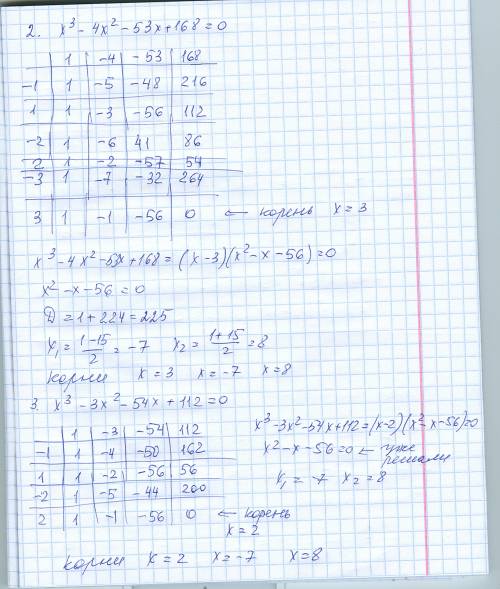 2. x³ - 4x² - 53x + 168 = 0
1 -4 -53 168
-1 1 -5 -48 216
1 1 -3 -56 112
-2 1 -6 41 86
2 1 -2 -57 54
-3 1 -7 -32 264
3 1 -1 -56 0 ← корень x = 3
x³ - 4x² - 53x + 168 = (x - 3)(x² - x - 56) = 0
x² - x - 56 = 0
D = 1 + 224 = 225
x₁ = (1-15)/2 = -7 x₂ = (1+15)/2 = 8
корни x = 3 x = -7 x = 8
3. x³ - 3x² - 54x + 112 = 0
1 -3 -54 112
-1 1 -4 -50 162
1 1 -2 -56 56
-2 1 -5 -44 200
2 1 -1 -56 0 ← корень
x = 2
x³ - 3x² - 54x + 112 = (x - 2)(x² - x - 56) = 0
x² - x - 56 = 0 ← уже
решали
x₁ = -7 x₂ = 8
корни x = 2 x = -7 x = 8